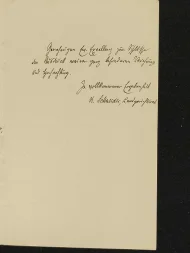 Genehmigen Ew. Excellenz zum Schlusse
den Ausdruck meiner ganz besonderen Verehrung
und Hochachtung
In vollkommener Ergebenheit